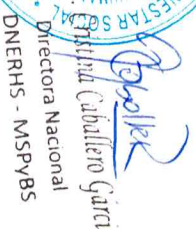 ESTAR SOCIAL
Cristina Caballero García
Directora Nacional
DNERHS - MSPyBS